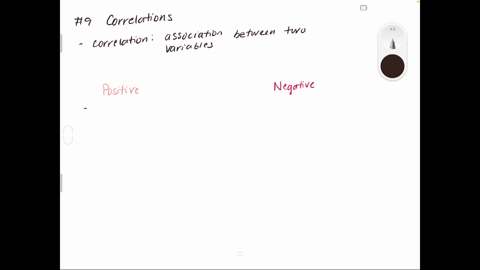 #9 Correlations
- correlation: association between two
variables
Positive
Negative
-